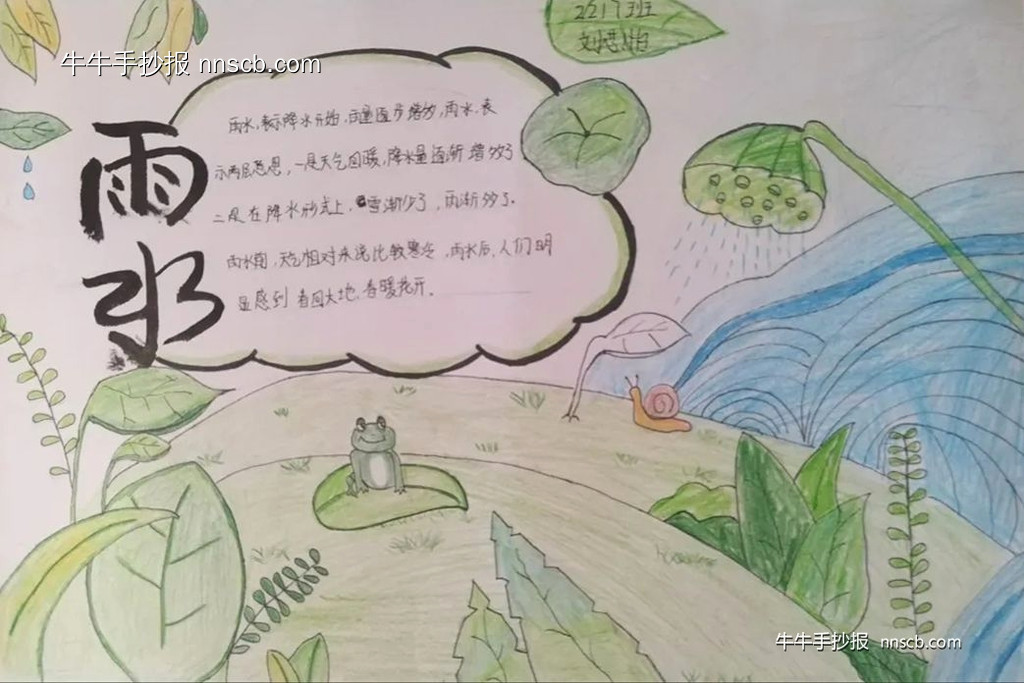 2217班
牛牛手抄报 nnscb.com
雨水
雨水,表示降水开始,雨量逐步增多,雨水,表
示两层意思,一是天气回暖,降水量逐渐增多了
二是在降水形式上,雪渐少了,雨渐多了。
雨水前,天气相对来说比较寒冷,雨水后,人们明
显感到春回大地,春暖花开.
牛牛手抄报 nnscb.com